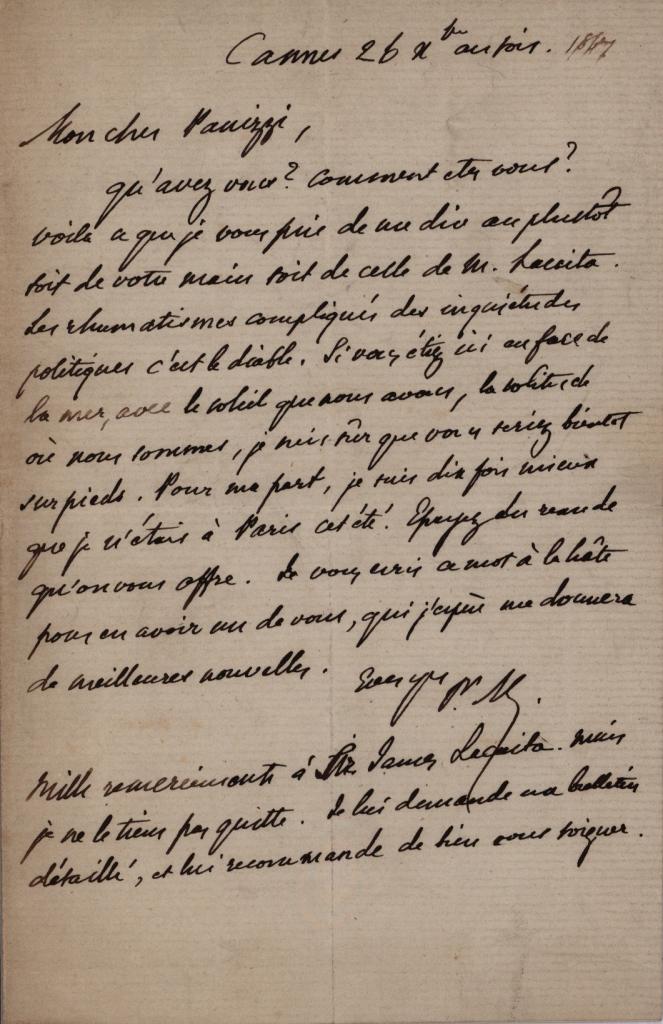 Cannes 26 Xbre au soir. 1867
Mon cher Panizzi,
qu'avez vous? Comment etes vous?
voilà ce que je vous prie de me dire au plustôt
soit de votre main soit de celle de M. Lacaita.
Les rhumatismes compliqués des inquiétudes
politiques c'est le diable. Si vous étiez ici en face de
la mer, avec le soleil que nous avons, la solitude
où nous sommes, je suis sûr que vous seriez bientot
sur pieds. Pour ma part, je suis dix fois mieux
que je n'étais à Paris cet été. Essayez du remede
qu'on vous offre. Je vous ecris ce mot à la hâte
pour en avoir un de vous, qui j'espère me donnera
de meilleures nouvelles. Ever yrs P. M.
Mille remerciements à Sir James Lacaita. mais
je ne le tiens pas quitte. Je lui demande un bulletin
détaillé, et lui recommande de bien vous soigner.